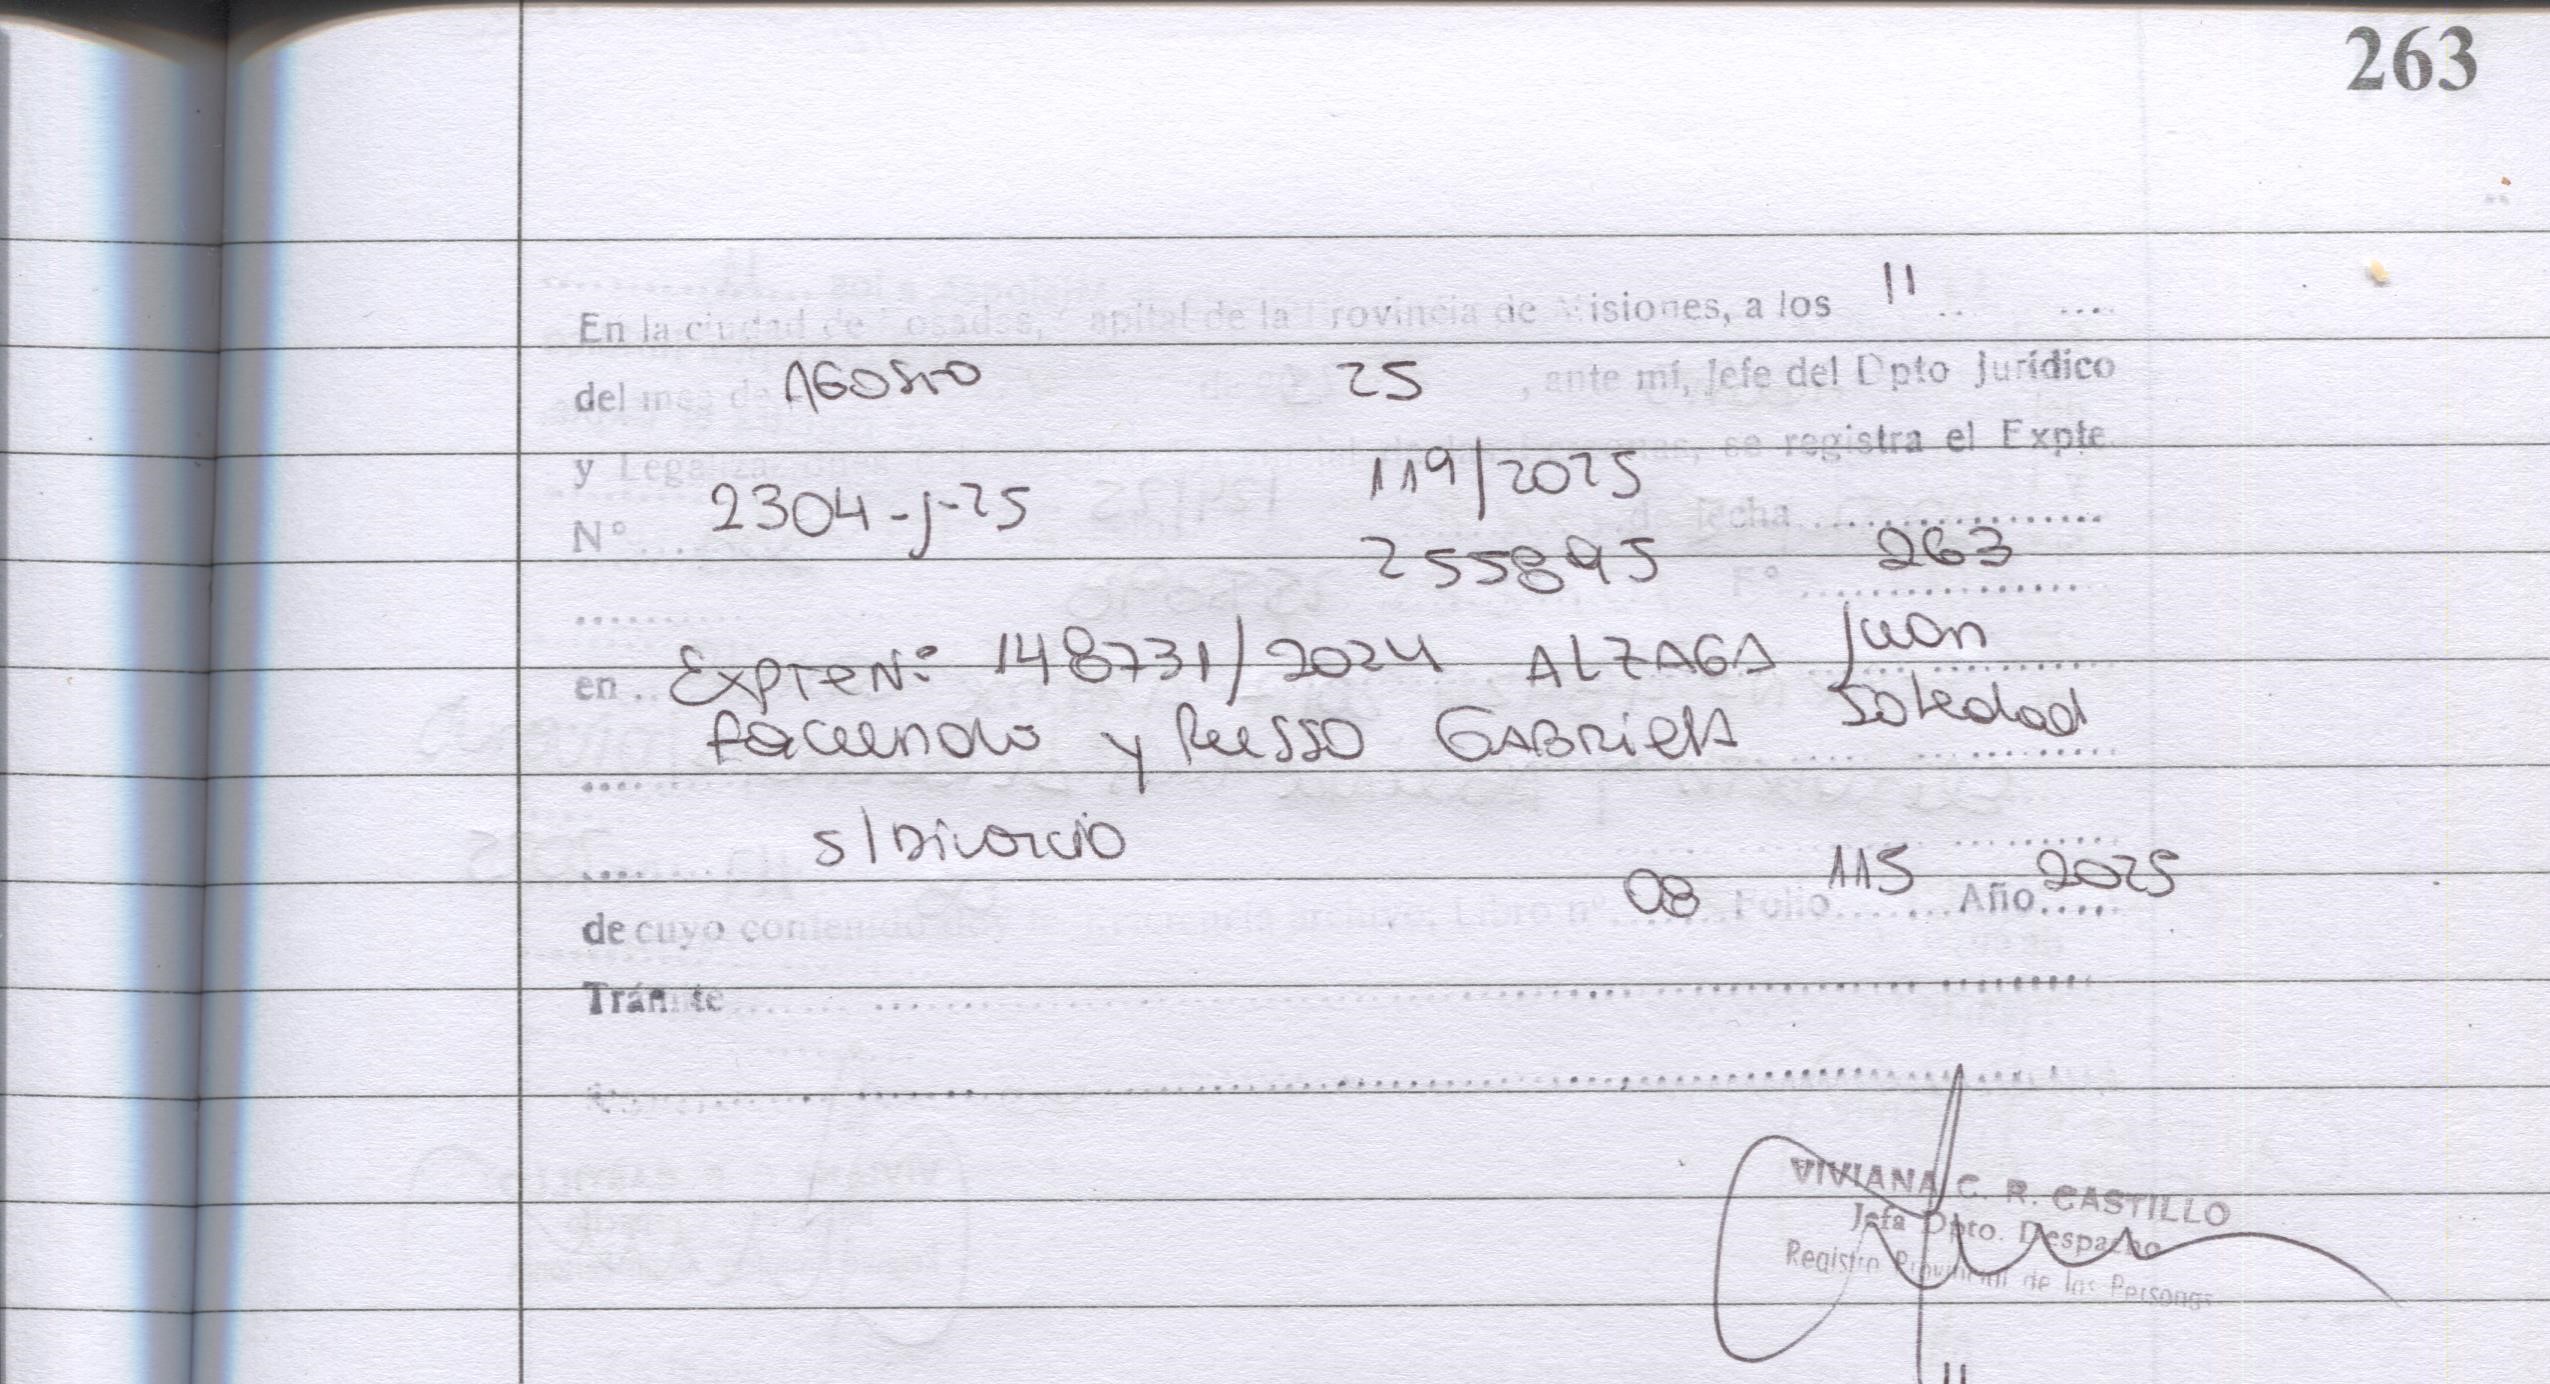 263
En la ciudad de Posadas, Capital de la Provincia de Misiones, a los 11
del mes de AGOSTO 25, ante mí, Jefe del Dpto Jurídico
y Legalizaciones se registra el Expte
Nº 2304-J-25 119/2025 de fecha
255895 Fº 263
en Expte Nº: 148731/2024 ALZAGA Juan
Facundo y Russo GABRIELA Soledad
s/Divorcio
de cuyo contenido Libro nº 08 Folio 115 Año 2025
Trámite
VIVIANA C. R. CASTILLO
Jefa Dpto. Despacho
Registro Provincial de las Personas